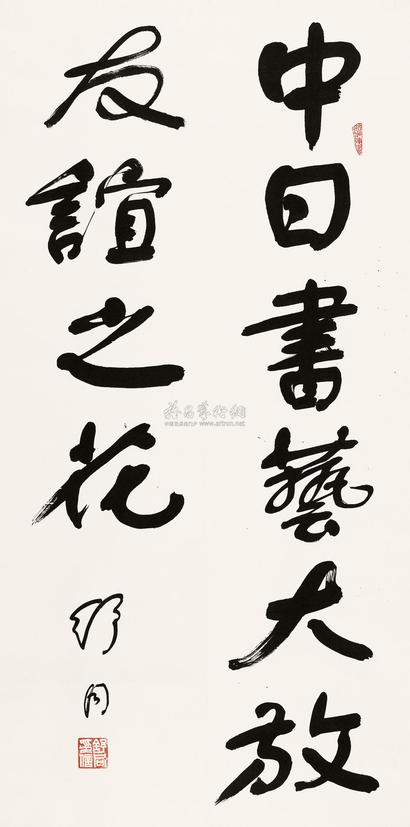 中日書藝大放
友誼之花
舒同
www.artron.net